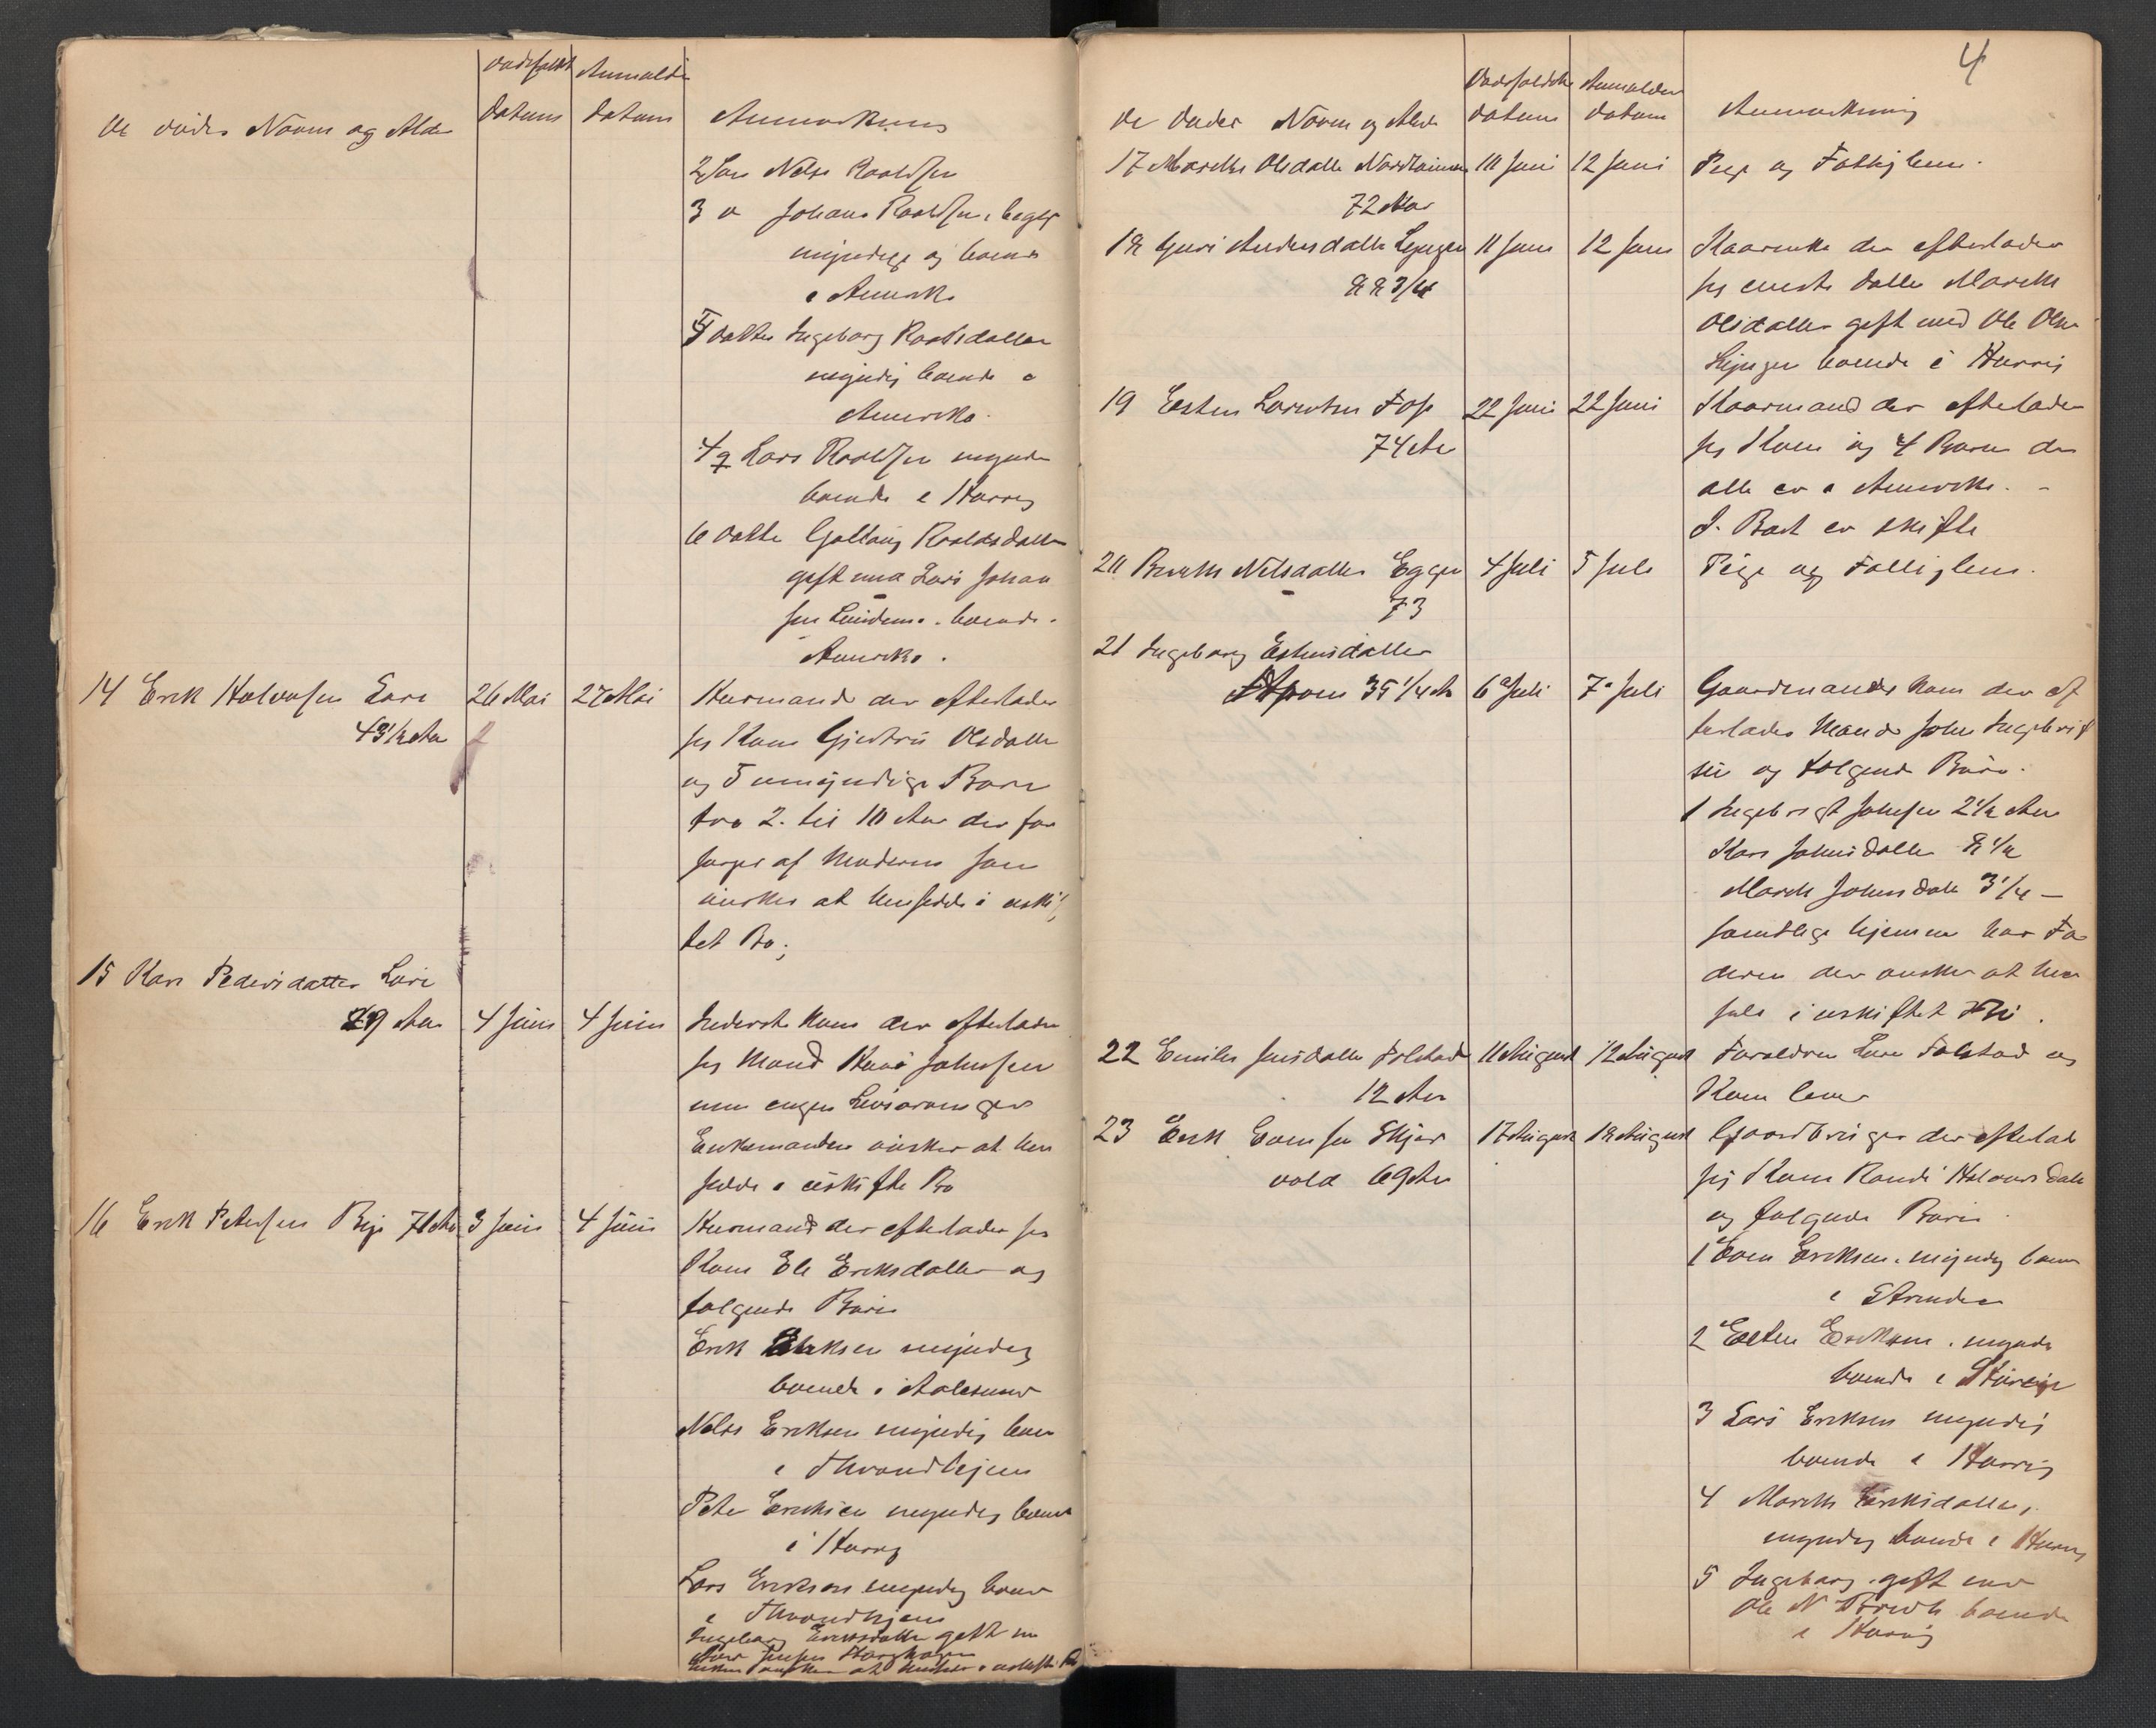 De dødes Navne og Alder
Dødsfalds
Datum
Anmeldelses
Datum
Anmærkning
2 Søn Nels Roaldsen
3 " Johans Roaldsen, begge
myndige og boende
i Amerika
4 Datter Ingeborg Roaldsdatter
myndig boende i
Amerika.
Lars Roaldsen myndig
boende i Horrig
6 Datter Gollaug Roaldsdatter
gift med Lars Johan
sen boende i
Amerika.
14 Erik Halvorsen Løre
43 1/2 Aar
26 Mai
27 Mai
Husmand der efterlader
sig Kone Gjertru Olsdatter
og 5 umyndige Børn
fra 2 til 10 Aar der for
sørges af Moderen som
ønsker at hensidde i uskif
tet Bo;
15 Kari Pedersdatter Løre
79 Aar
4 Juni
4 Juni
Inderste Kone der efterlader
sig Mand Johnsen
men ingen Livsarvinger
Enkemanden ønsker at hen
sidde i uskifte Bo
16 Erik Petersen Bye 71 Aar
3 Juni
4 Juni
Husmand der efterlader sig
Kone Eli Eriksdatter og
følgende Børn
Erik Eriksen myndig
boende i Aalesund
Nels Eriksen myndig boen
i Throndhjem
Peter Eriksen myndig boend
i Horrig
Lars Eriksen myndig boend
i Throndhjem
Ingeborg Eriksdatter gift m
Jensen
Enken ønsker at hensidde i uskifte Bo
4
De Dødes Navne og Alder
Dødsfaldets
datum
Anmeldelses
datum
Anmærkning
17 Marith Olsdatter
72 Aar
10 Juni
12 Juni
Pige og Fattiglem.
18 Guri Andersdatter Lyngen
88 3/4
11 Juni
12 Juni
Kaarenke der efterlader
sig eneste Datter Marith
Olsdatter gift med Ole Olsen
Lyngen boende i Horrig
19 Esten Larsen Fos
74 Aar
22 Juni
22 Juni
Kaarmand der efterlader
sig Kone og 4 Børn der
alle er i Amerika. -
I Boet er skifte
20 Berith Nilsdatter Eggen
73
4 Juli
5 Juli
Pige og Fattiglem.
21 Ingeborg Estensdatter
35 1/4 Aar
6 Juli
7 Juli
Gaardmands Kone der ef
terlader Mand John Ingebrigt
sen og følgende Børn.
1 Ingebrigt Johnsen 2 1/2 Aar
Kari Johnsdatter 8 1/2
Marith Johnsdatter 3 1/4 —
samtlige hjemme hos Fa
deren der ønsker at hen
sidde i uskiftet Bo.
22 Emilie Jensdatter Folstad
12 Aar
11 August
12 August
Forældre Folstad og
Kone lever
23 Erik Evensen Skjær
vold 69 Aar
17 August
18 August
Gaardbruger der efterlad
sig Kone Randi Halvorsdatter
og følgende Børn.
1 Even Eriksen, myndig boen
i Strinden
2 Esten Eriksen, myndig
boende i Størein
3 Lars Eriksen myndig
boende i Horrig
4 Marith Eriksdatter,
myndig boende i Horrig
5 Ingeborg, gift med
Ole N boende
i Horrig